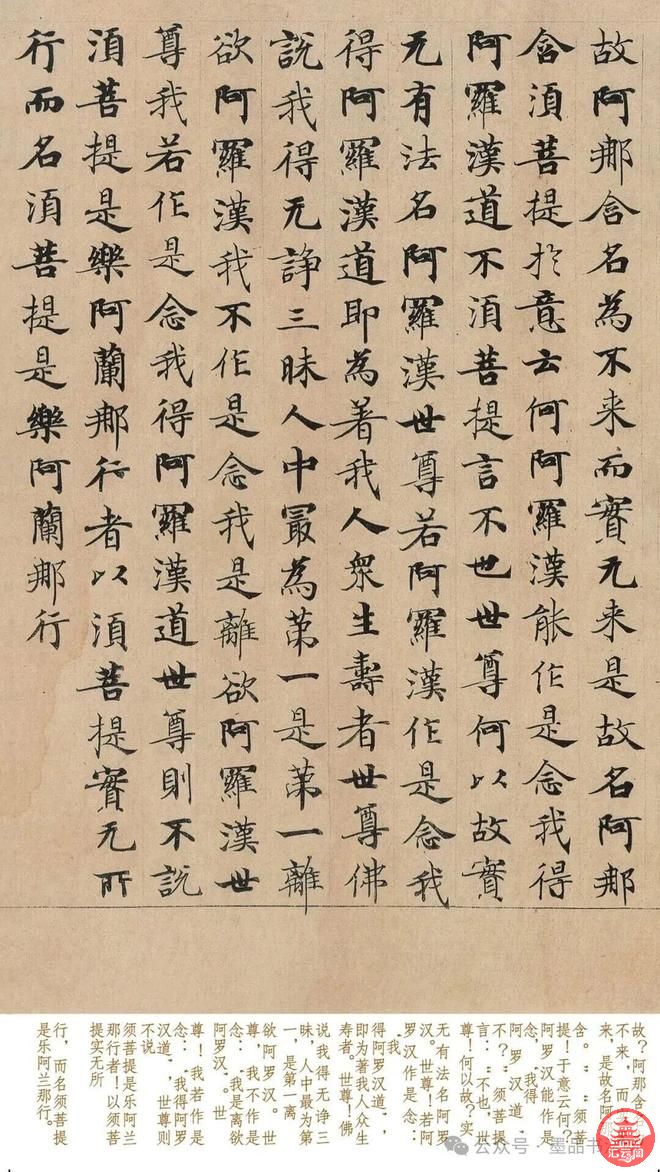 故阿那含名為不来而實无来是故名阿那
含湏菩提扵意云何阿羅漢能作是念我得
阿羅漢道不湏菩提言不也世尊何以故實
无有法名阿羅漢世尊若阿羅漢作是念我
得阿羅漢道即為著我人衆生壽者世尊佛
說我得无諍三昧人中冣為苐一是苐一離
欲阿羅漢我不作是念我是離欲阿羅漢世
尊我若作是念我得阿羅漢道世尊則不說
湏菩提是樂阿蘭那行者以湏菩提實无所
行而名湏菩提是樂阿蘭那行
故？阿那含
不来，而
来，是故名阿
含。”“须菩
提！于意云何？
阿罗汉能作是
念，‘我得
阿罗汉道’
不？”须菩提
言：“不也，世
尊！何以故？实
无有法名阿罗
汉。世尊！若阿
罗汉作是念：
‘我
得阿罗汉道’，
即为著我人众生
寿者。世尊！佛
说我得无诤三
昧，人中最为第
一，是第一离
欲阿罗汉。世
尊，我不作是
念：‘我是离欲
阿罗汉’。世
尊！我若作是
念：‘我得阿罗
汉道’，世尊则
不说
须菩提是乐阿兰
那行者！以须菩
提实无所
行，而名须菩提
是乐阿兰那行。
公众号·墨品书
汇云阁